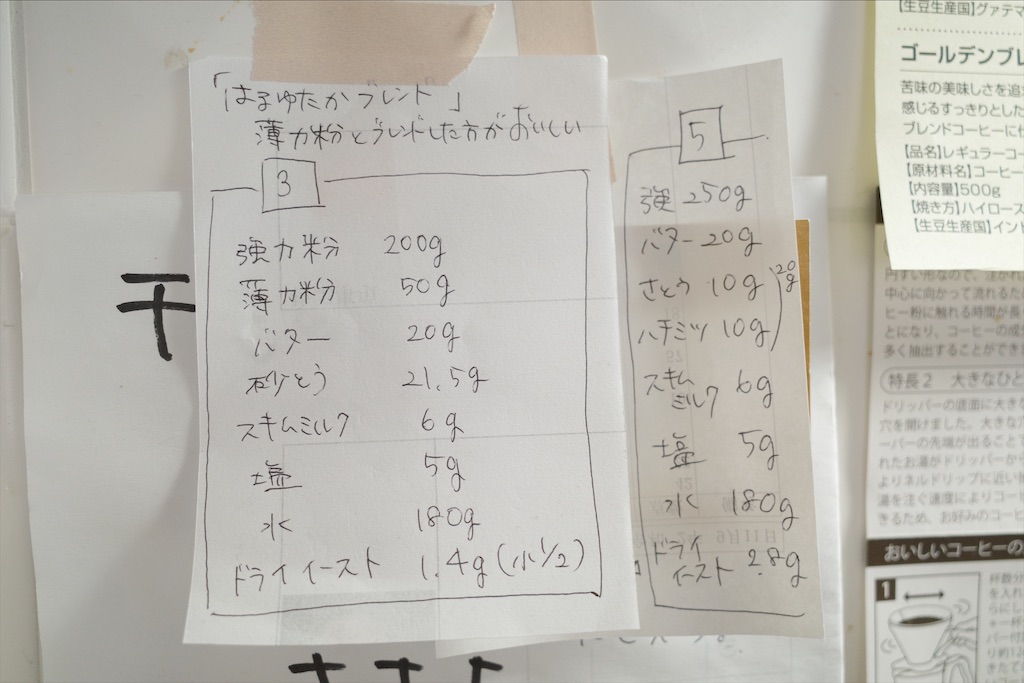 「はるゆたかブレンド」
薄力粉とブレンドした方がおいしい
3
強力粉 200g
薄力粉 50g
バター 20g
砂とう 21.5g
スキムミルク 6g
塩 5g
水 180g
ドライイースト 1.4g(小1/2)
5
強 250g
バター 20g
さとう 10g
ハチミツ 10g
20g
スキム
ミルク 6g
塩 5g
水 180g
ドライ
イースト 2.8g
9月11日
干
【生豆生産国】グァテマ
ゴールデンブレ
苦味の美味しさを追
感じるすっきりとした
ブレンドコーヒーに仕
【品名】レギュラーコー
【原材料名】コーヒー
【内容量】500g
【焼き方】ハイロース
【生豆生産国】イント
中心に向かって流れるた
ヒー粉に触れる時間が長
とになり、コーヒーの成
多く抽出することができ
特長2 大きなひと
ドリッパーの底面に大き
穴を開けました。大きな
ーパーの先端が出ることで
れたお湯がドリッパーから
よりネルドリップに近い抽
湯を注ぐ速度によりコー
きるため、お好みのコーヒ
おいしいコーヒーの
1
杯数分
を入れ
らにし